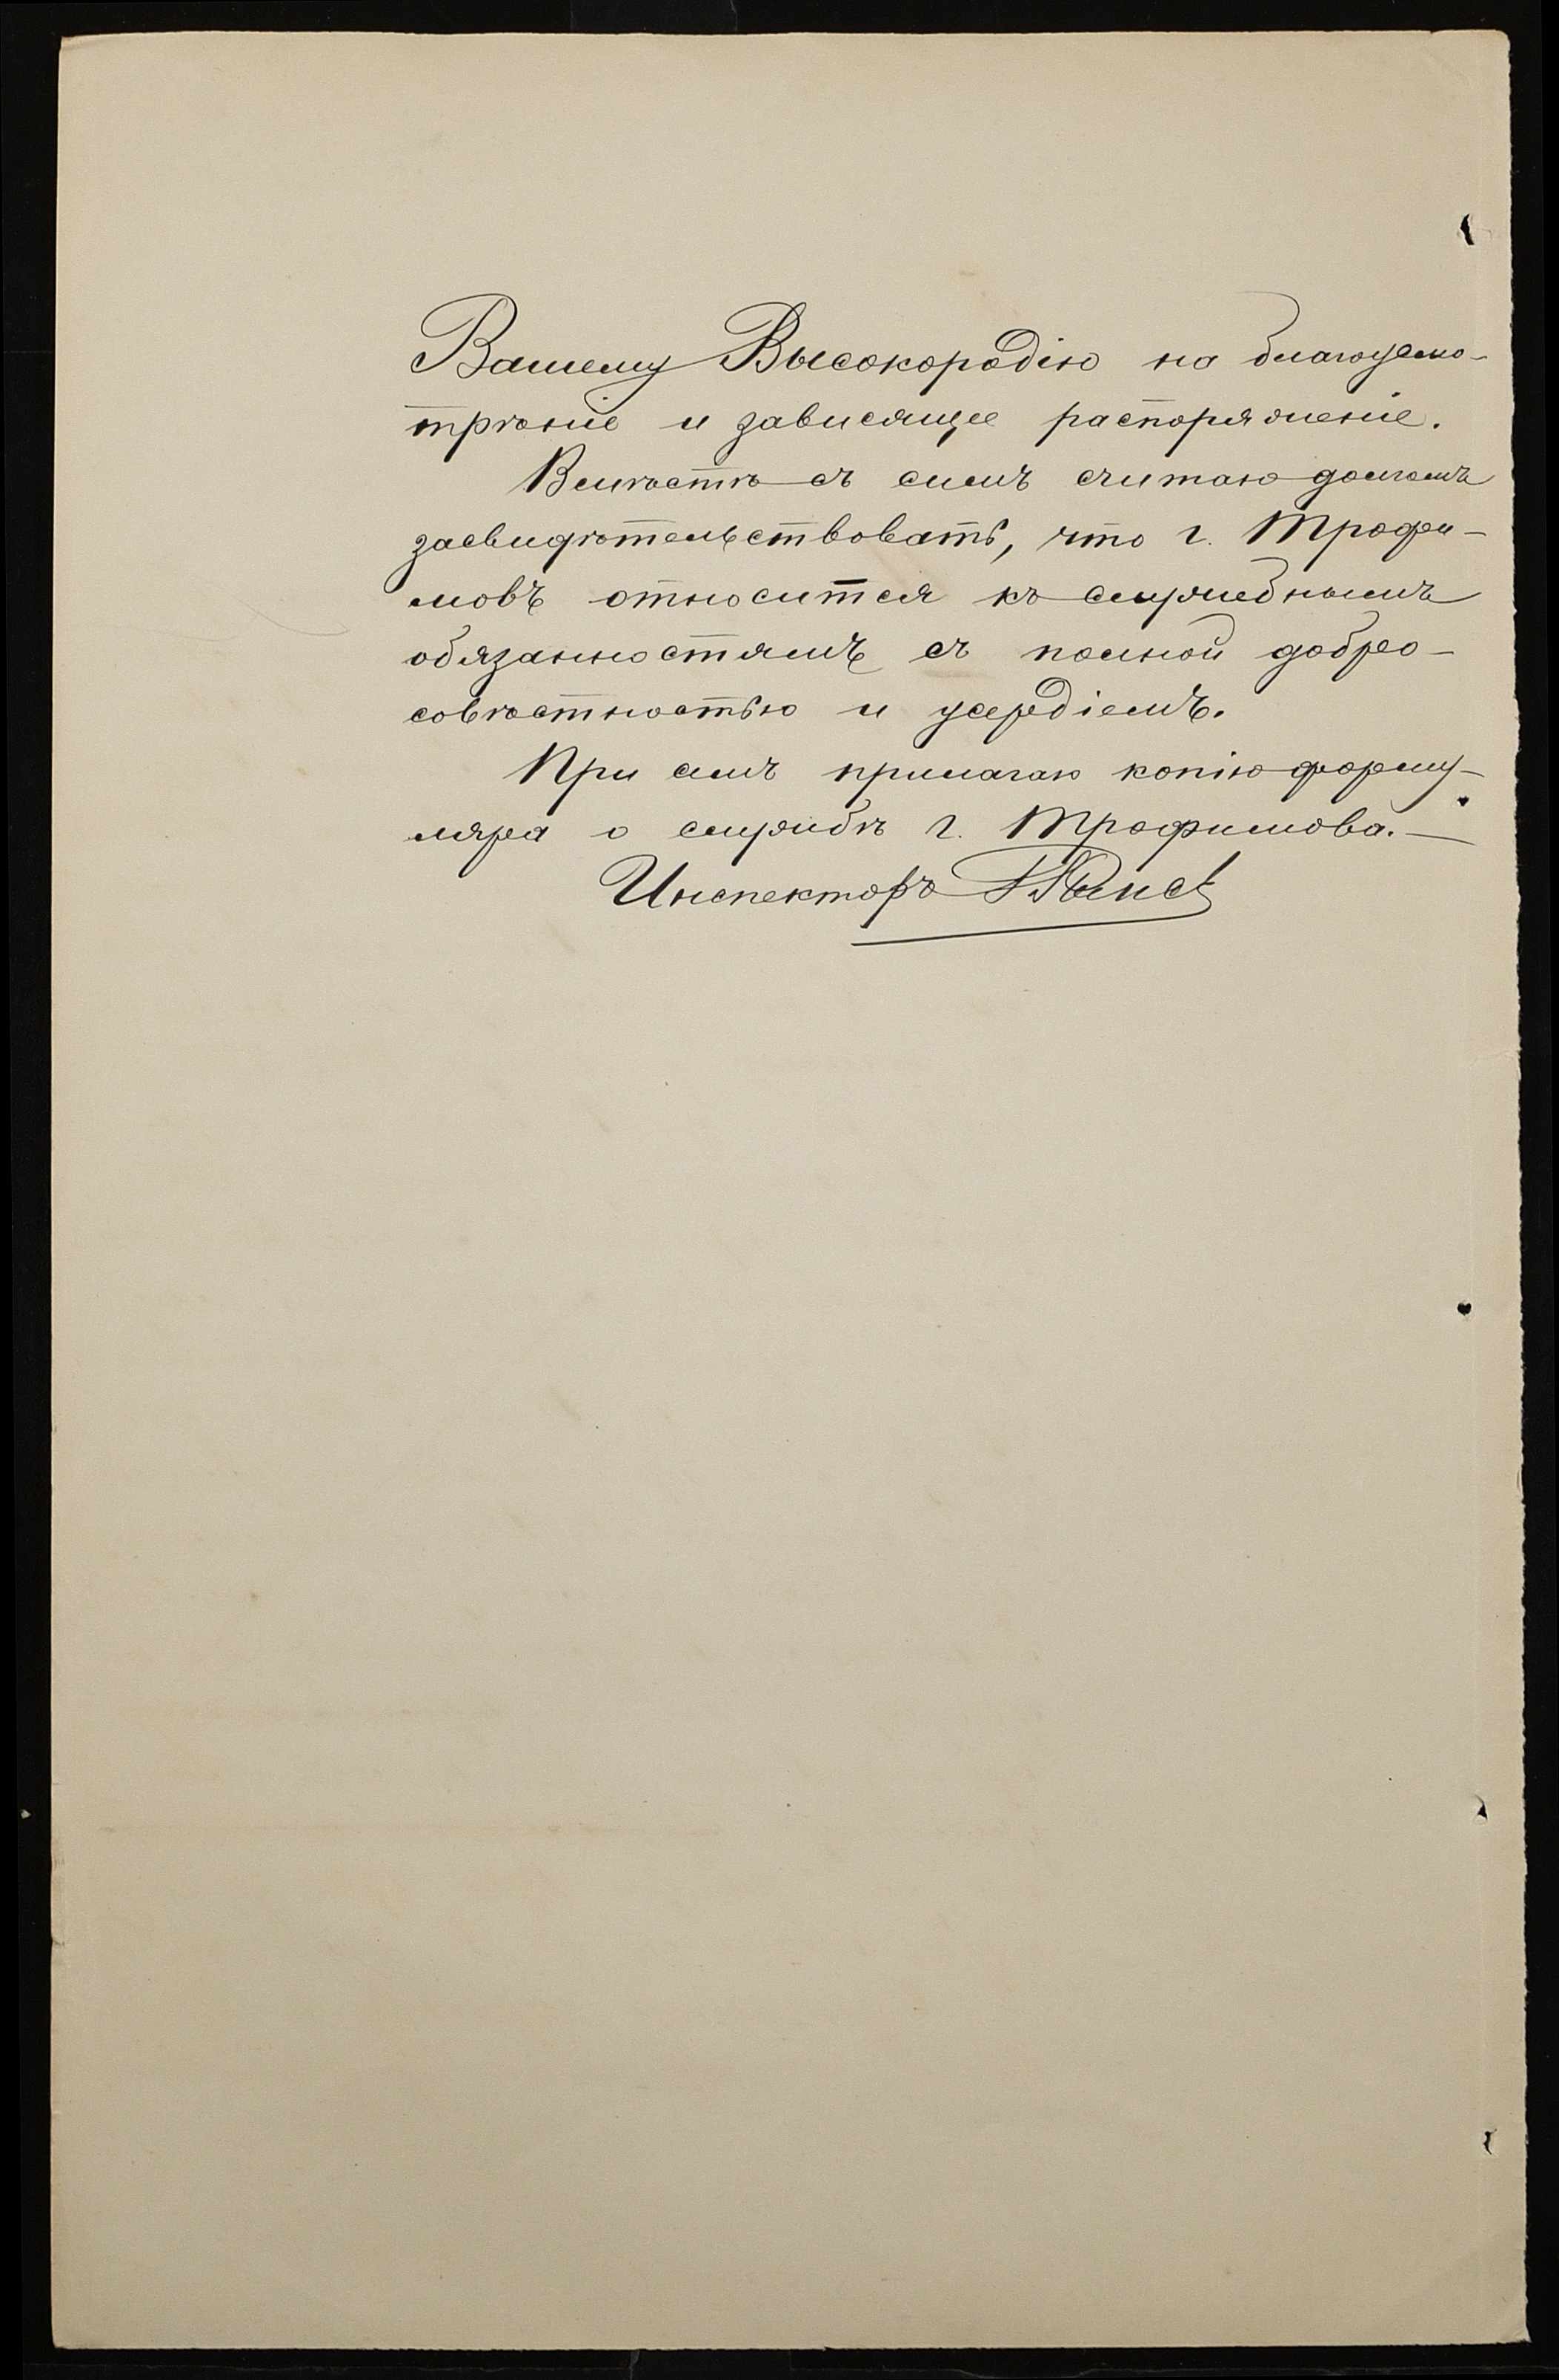 Вашему Высокородію на благоусмо-
трѣніе и зависящее распоряженіе.
Вмѣстѣ съ симъ считаю долгомъ
засвидѣтельствовать, что г. Трофи-
мовъ относится къ служебнымъ
обязанностямъ съ полной добро-
совѣстностью и усердіемъ.
При семъ прилагаю копію форму-
ляра о службѣ г. Трофимова.—
Инспекторъ